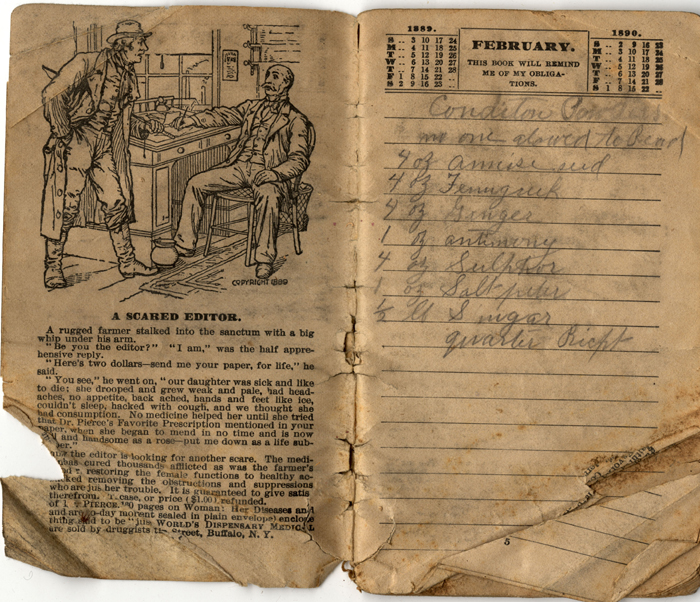 COPYRIGHT 1889
A SCARED EDITOR.
A rugged farmer stalked into the sanctum with a big
whip under his arm.
"Be you the editor?" "I am," was the half appre-
hensive reply.
"Here's two dollars—send me your paper, for life," he
said.
"You see," he went on, "our daughter was sick and like
to die; she drooped and grew weak and pale, had head-
aches, no appetite, back ached, hands and feet like ice,
couldn't sleep, hacked with cough, and we thought she
had consumption. No medicine helped her until she tried
that Dr. Pierce's Favorite Prescription mentioned in your
paper, when she began to mend in no time and is now
and handsome as a rose—put me down as a life sub-
the editor is looking for another scare. The medi-
cured thousands afflicted as was the farmer's
restoring the female functions to healthy ac-
removing the obstructions and suppressions
who are her trouble. It is guaranteed to give satis
therefrom. case, or price ($1.00) refunded.
of PIERCE. pages on Woman: Her Diseases and
and sealed in plain envelope
to be WORLD'S DISPENSARY MEDICAL
are sold by druggists Street, Buffalo, N. Y.
1889.
S .. 3 10 17 24
M .. 4 11 18 25
T .. 5 12 19 26
W .. 6 13 20 27
T .. 7 14 21 28
F 1 8 15 22 ..
S 2 9 16 23 ..
FEBRUARY.
THIS BOOK WILL REMIND
ME OF MY OBLIGA-
TIONS.
1890.
S .. 2 9 16 23
M .. 3 10 17 24
T .. 4 11 18 25
W .. 5 12 19 26
T .. 6 13 20 27
F .. 7 14 21 28
S 1 8 15 22 ..
Conditon
no one alowed to
4 oz Annise seed
4 oz Fenugreek
4 oz Ginger
1 oz antimony
4 oz Sulphor
1 oz Saltpeter
1/2 lb Sugar
quarter
5